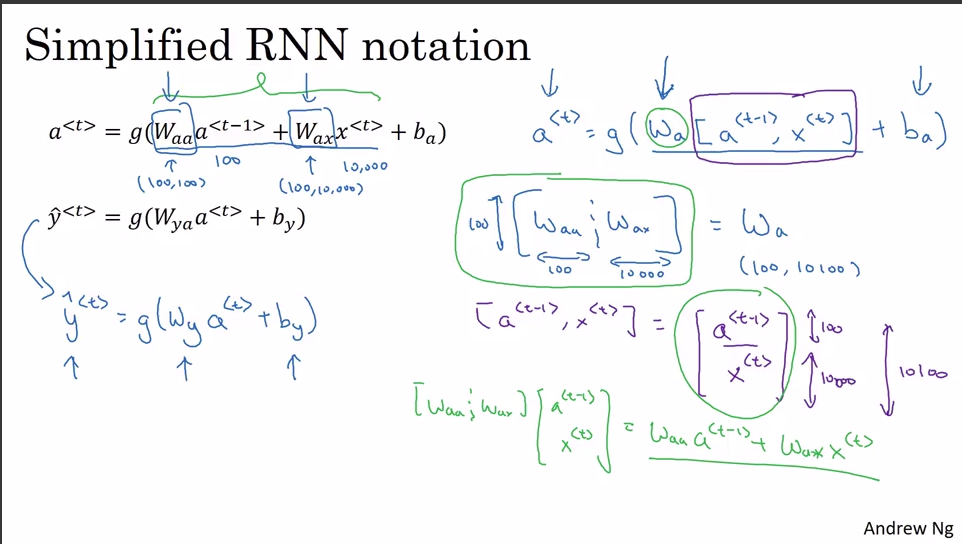 Simplified RNN notation
a<t> = g(Waa a<t−1> + Wax x<t> + ba)
100 10,000
(100,100) (100,10,000)
ŷ<t> = g(Wya a<t> + by)
ŷ<t> = g(Wy a<t> + by)
a<t> = g(Wa [a<t-1>, x<t>] + ba)
100 [Waa ; Wax] = Wa
100 10000
(100, 10100)
[a<t-1>, x<t>] = [a<t-1>
x<t>] 100
10000
10100
[Waa ; Wax] [a<t-1>
x<t>] = Waa a<t-1> + Wax x<t>
Andrew Ng